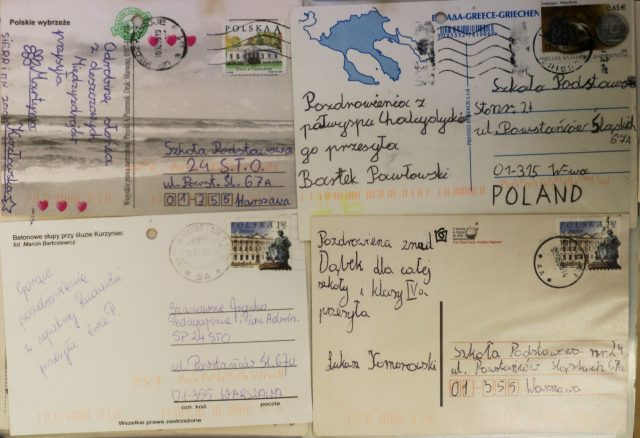 Polskie wybrzeże
POLSKA
Odrobinę słońca
z deszczowych
Międzyzdrojów
przesyła
Martyna Kozłowska
SIERPIEŃ
Szkoła Podstawowa
24 S.T.O.
ul. Powst. Śl. 67A
01-355 Warszawa
GREECE-GRIECHEN
0,65€
Pozdrowienia z
półwyspu Chalcydyckie
go przesyła
Bartek Pawłowski
Szkoła Podstawowa
STO nr. 24
ul. Powstańców Śląskich
67A
01-315 W-wa
POLAND
Betonowe słupy przy śluzie Kurzyniec;
fot. Marcin Bartosiewicz
POLSKA
Gorące
pozdrowienia
z
przesyła
Szanowne Grono
Pedagogiczne i Pion Admin.
SP 24 STO
ul. Powstańców Śl. 67a
01-355 WARSZAWA
ozn. kod. poczta
Wszelkie prawa zastrzeżone
POLSKA
Pozdrowienia znad
Dąbek dla całej
szkoły i klasy IVa
przesyła
Łukasz Komorowski
Szkoła Podstawowa nr 24
ul. Powstańców Śląskich 67a
01-355 Warszawa